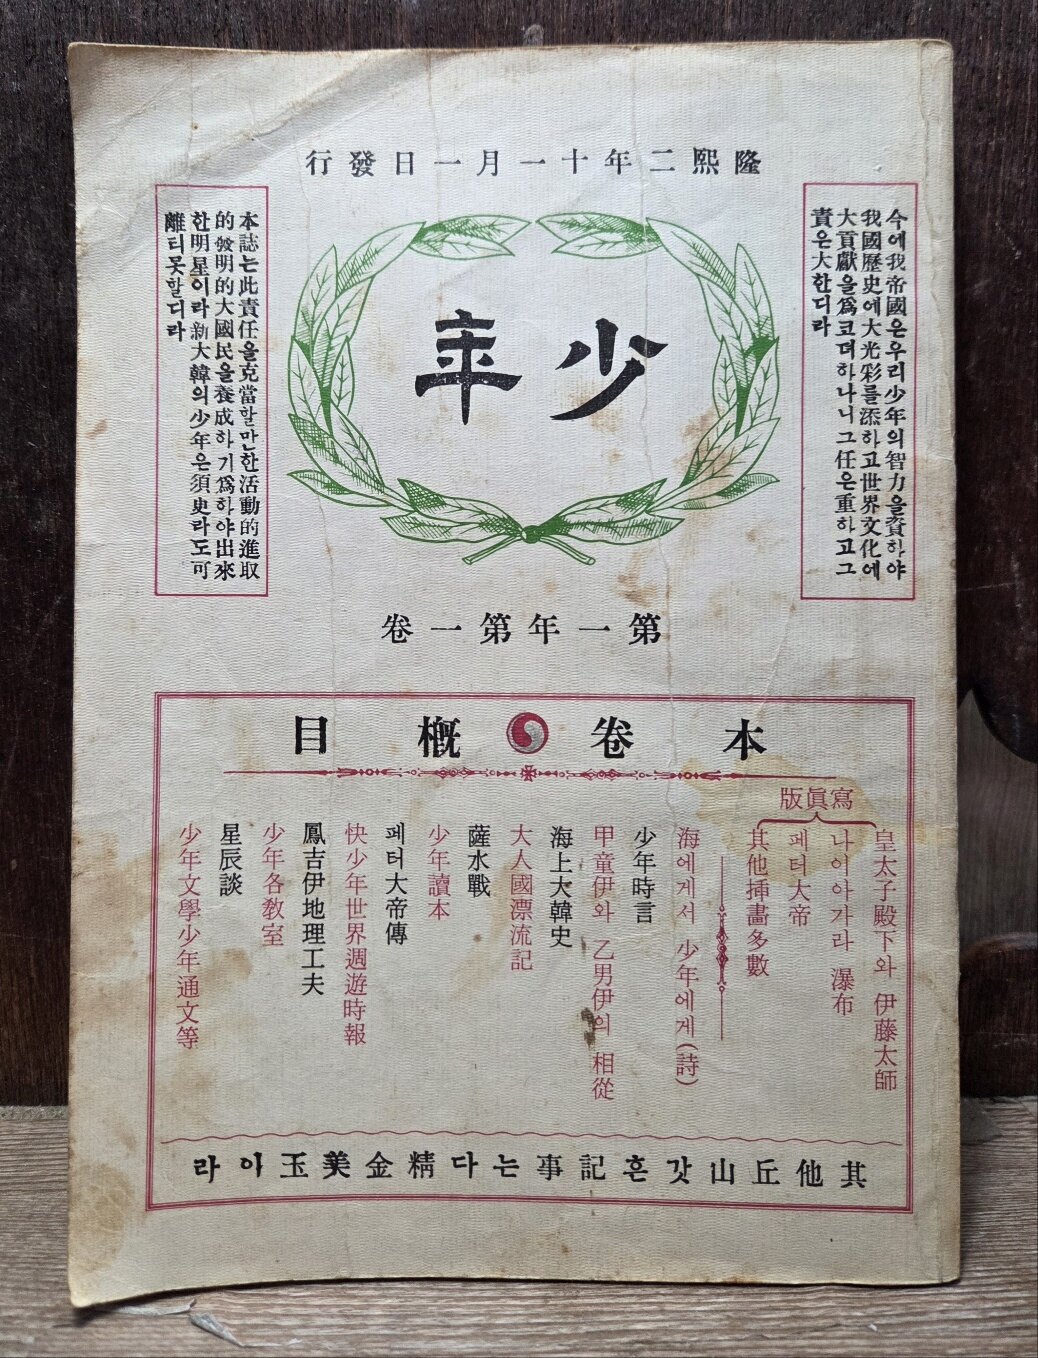 隆熙二年十一月一日發行
今에我帝國은우리少年의智力을資하야
我國歷史에大光彩를添하고世界文化에
大貢獻을爲코뎌하나니그任은重하고그
責은大한디라
少年
本誌는此責任을克當할만한活動的進取
的發明的大國民을養成하기爲하야出來
한明星이라新大韓의少年은須臾라도可
離티못할디라
第一年第一卷
本卷概目
寫眞版
皇太子殿下와 伊藤太師
나이아가라 瀑布
페터大帝
其他揷畵多數
海에게서 少年에게(詩)
少年時言
甲童伊와 乙男伊의 相從
海上大韓史
大人國漂流記
薩水戰
少年讀本
페터大帝傳
快少年世界週遊時報
鳳吉伊地理工夫
少年各敎室
星辰談
少年文學少年通文等
其他丘山갓흔記事는다精金美玉이라